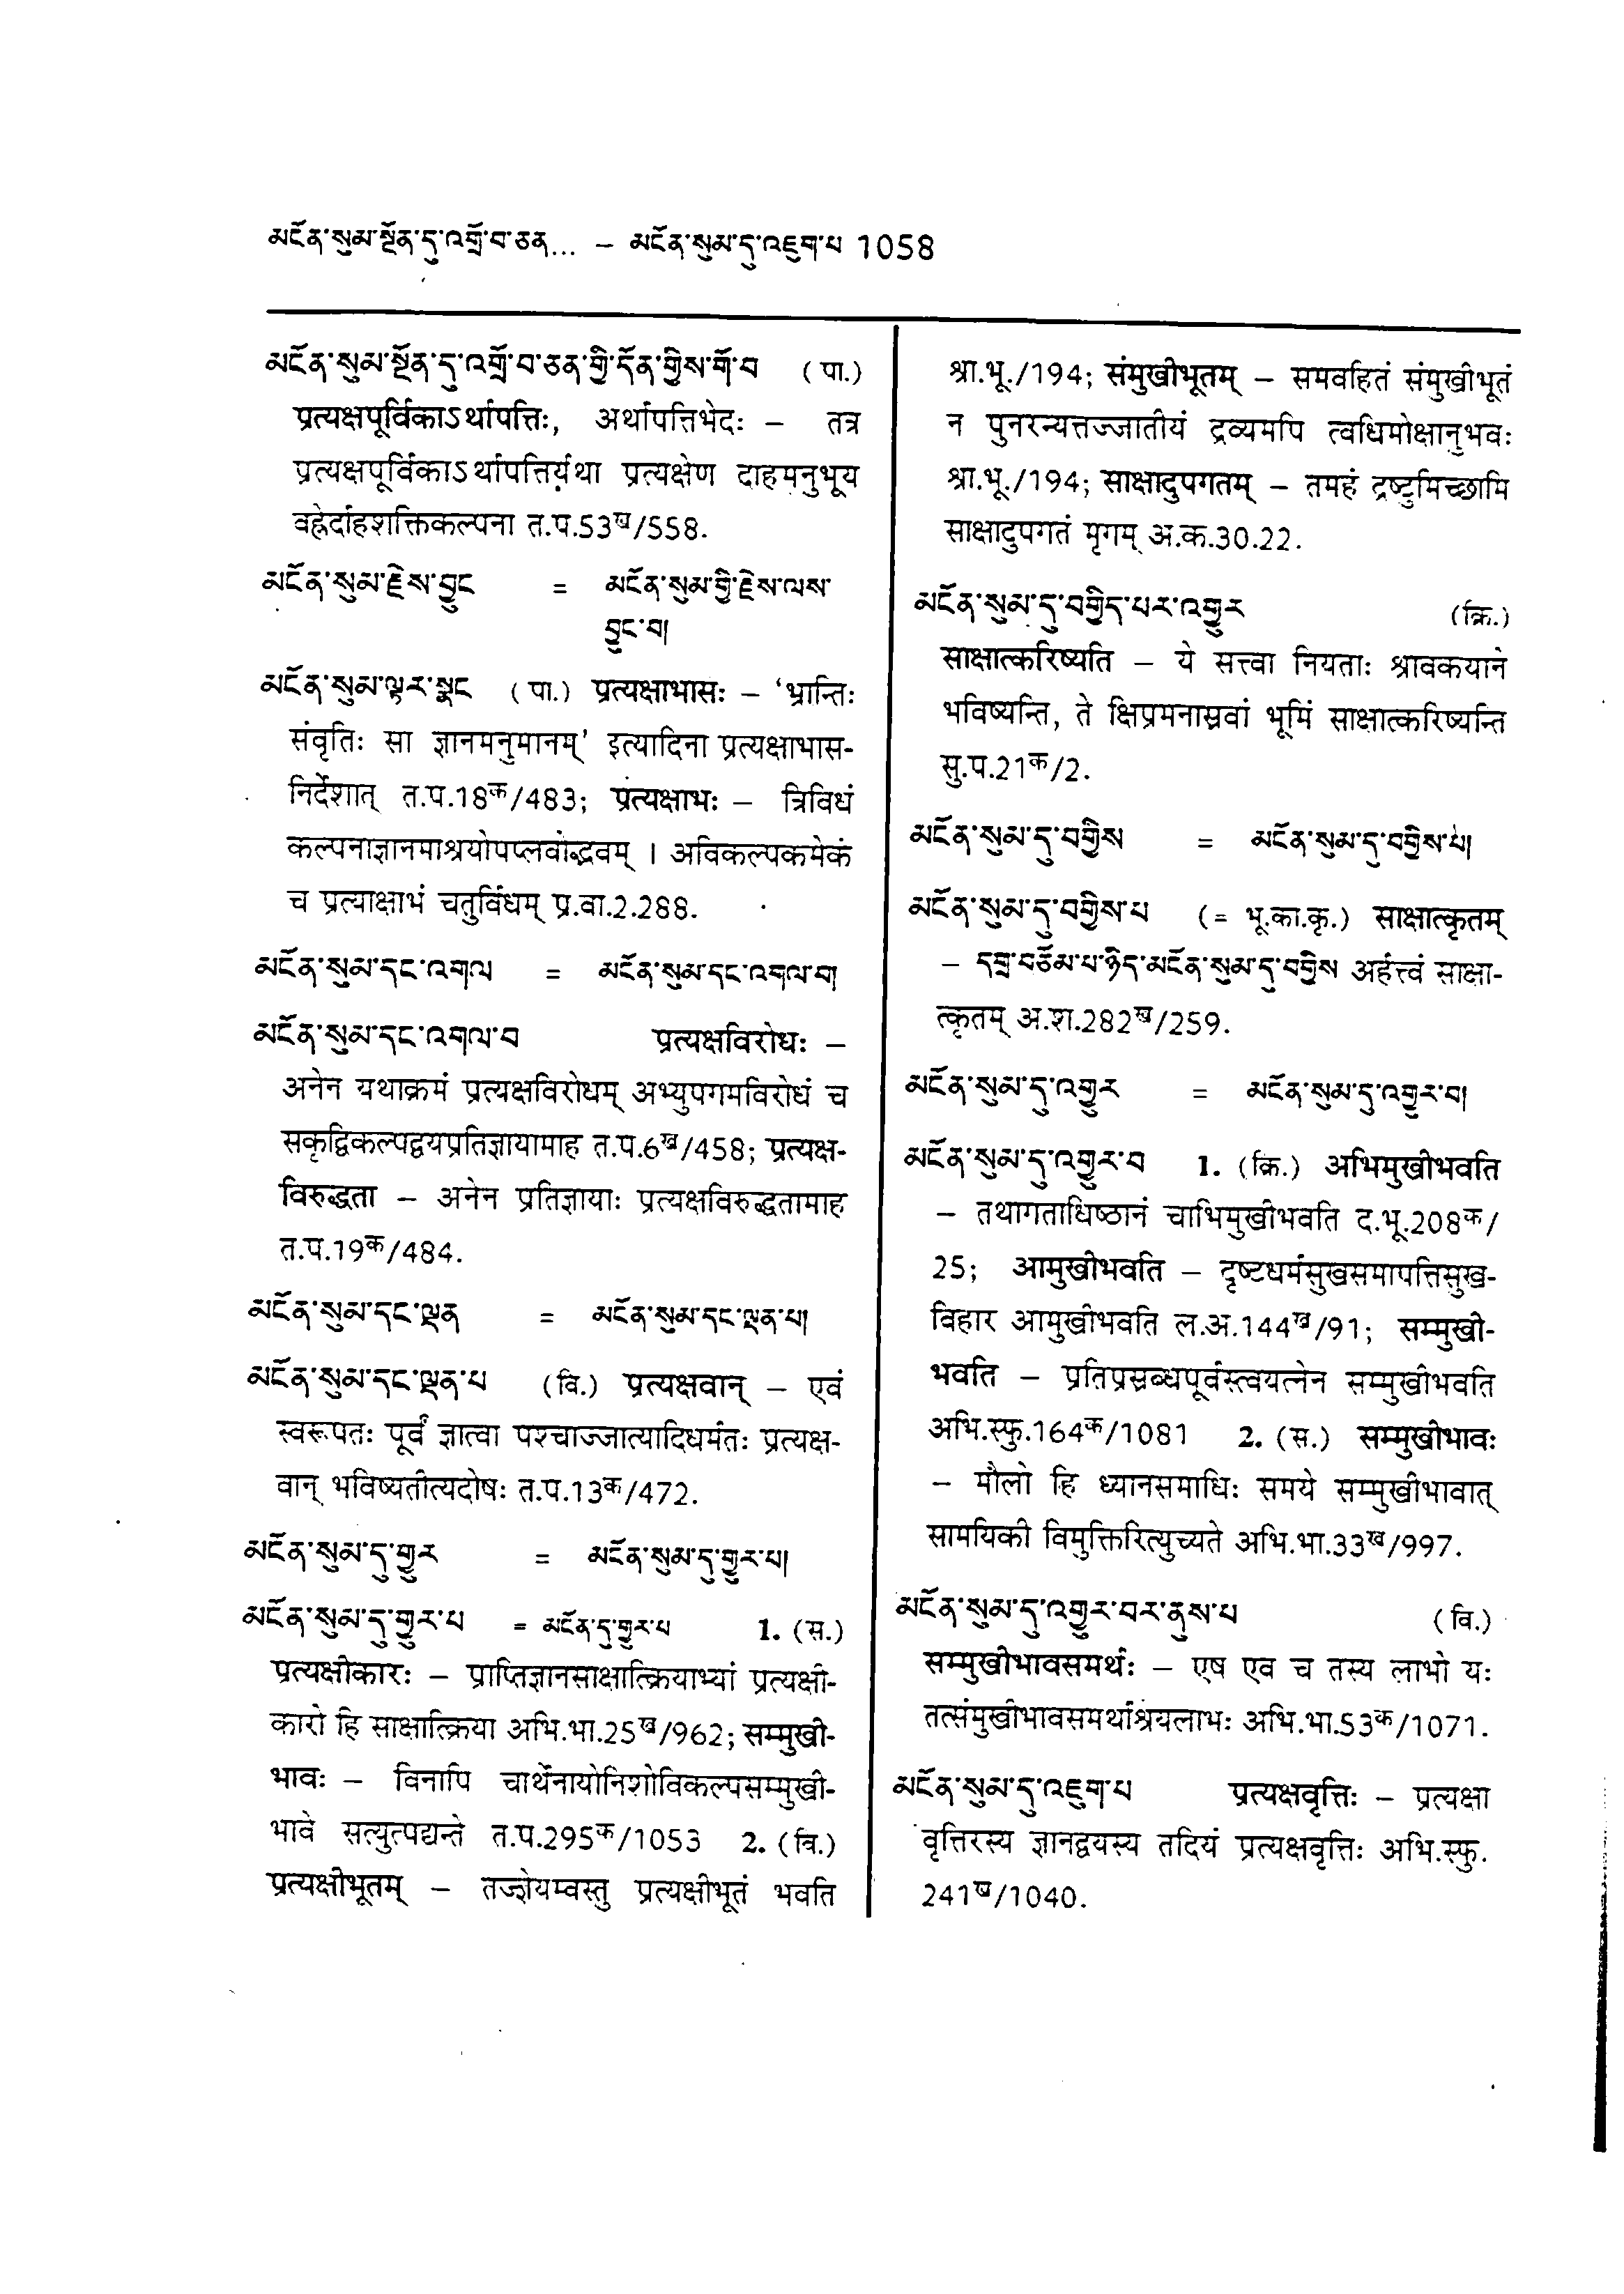 མངོན་སུམ་སྔོན་དུ་འགྲོ་བ་ཅན... – མངོན་སུམ་དུ་འཇུག་པ 1058
མངོན་སུམ་སྔོན་དུ་འགྲོ་བ་ཅན་གྱི་དོན་གྱིས་གོ་བ (पा.)
प्रत्यक्षपूर्विकाऽर्थापत्तिः, अर्थापत्तिभेदः – तत्र
प्रत्यक्षपूर्विकाऽर्थापत्तिर्यथा प्रत्यक्षेण दाहमनुभूय
वह्नेर्दाहशक्तिकल्पना त.प.53ख/558.
མངོན་སུམ་རྗེས་བྱུང = མངོན་སུམ་གྱི་རྗེས་ལས་
བྱུང་བ།
མངོན་སུམ་ལྟར་སྣང (पा.) प्रत्यक्षाभासः – ‘भ्रान्तिः
संवृतिः सा ज्ञानमनुमानम्’ इत्यादिना प्रत्यक्षाभास-
निर्देशात् त.प.18क/483; प्रत्यक्षाभः – त्रिविधं
कल्पनाज्ञानमाश्रयोपप्लवोद्भवम् । अविकल्पकमेकं
च प्रत्याक्षाभं चतुर्विधम् प्र.वा.2.288.
མངོན་སུམ་དང་འགལ = མངོན་སུམ་དང་འགལ་བ།
མངོན་སུམ་དང་འགལ་བ प्रत्यक्षविरोधः –
अनेन यथाक्रमं प्रत्यक्षविरोधम् अभ्युपगमविरोधं च
सकृद्विकल्पद्वयप्रतिज्ञायामाह त.प.6ख/458; प्रत्यक्ष-
विरुद्धता – अनेन प्रतिज्ञायाः प्रत्यक्षविरुद्धतामाह
त.प.19क/484.
མངོན་སུམ་དང་ལྡན = མངོན་སུམ་དང་ལྡན་པ།
མངོན་སུམ་དང་ལྡན་པ (वि.) प्रत्यक्षवान् – एवं
स्वरूपतः पूर्वं ज्ञात्वा पश्चाज्जात्यादिधर्मतः प्रत्यक्ष-
वान् भविष्यतीत्यदोषः त.प.13क/472.
མངོན་སུམ་དུ་གྱུར = མངོན་སུམ་དུ་གྱུར་པ།
མངོན་སུམ་དུ་གྱུར་པ = མངོན་དུ་གྱུར་པ 1. (स.)
प्रत्यक्षीकारः – प्राप्तिज्ञानसाक्षात्क्रियाभ्यां प्रत्यक्षी-
कारो हि साक्षात्क्रिया अभि.भा.25ख/962; सम्मुखी-
भावः – विनापि चार्थेनायोनिशोविकल्पसम्मुखी-
भावे सत्युत्पद्यन्ते त.प.295क/1053 2. (वि.)
प्रत्यक्षीभूतम् – तज्ज्ञेयम्वस्तु प्रत्यक्षीभूतं भवति
श्रा.भू./194; संमुखीभूतम् – समवहितं संमुखीभूतं
न पुनरन्यत्तज्जातीयं द्रव्यमपि त्वधिमोक्षानुभवः
श्रा.भू./194; साक्षादुपगतम् – तमहं द्रष्टुमिच्छामि
साक्षादुपगतं मृगम् अ.क.30.22.
མངོན་སུམ་དུ་བགྱིད་པར་འགྱུར (क्रि.)
साक्षात्करिष्यति – ये सत्त्वा नियताः श्रावकयाने
भविष्यन्ति, ते क्षिप्रमनास्रवां भूमिं साक्षात्करिष्यन्ति
सु.प.21क/2.
མངོན་སུམ་དུ་བགྱིས = མངོན་སུམ་དུ་བགྱིས་པ།
མངོན་སུམ་དུ་བགྱིས་པ (= भू.का.कृ.) साक्षात्कृतम्
– དགྲ་བཅོམ་པ་ཉིད་མངོན་སུམ་དུ་བགྱིས अर्हत्त्वं साक्षा-
त्कृतम् अ.श.282ख/259.
མངོན་སུམ་དུ་འགྱུར = མངོན་སུམ་དུ་འགྱུར་བ།
མངོན་སུམ་དུ་འགྱུར་བ 1. (क्रि.) अभिमुखीभवति
– तथागताधिष्ठानं चाभिमुखीभवति द.भू.208क/
25; आमुखीभवति – दृष्टधर्मसुखसमापत्तिसुख-
विहार आमुखीभवति ल.अ.144ख/91; सम्मुखी-
भवति – प्रतिप्रस्रब्धपूर्वस्त्वयत्नेन सम्मुखीभवति
अभि.स्फु.164क/1081 2. (स.) सम्मुखीभावः
– मौलो हि ध्यानसमाधिः समये सम्मुखीभावात्
सामयिकी विमुक्तिरित्युच्यते अभि.भा.33ख/997.
མངོན་སུམ་དུ་འགྱུར་བར་ནུས་པ (वि.)
सम्मुखीभावसमर्थः – एष एव च तस्य लाभो यः
तत्संमुखीभावसमर्थाश्रयलाभः अभि.भा.53क/1071.
མངོན་སུམ་དུ་འཇུག་པ प्रत्यक्षवृत्तिः – प्रत्यक्षा
वृत्तिरस्य ज्ञानद्वयस्य तदियं प्रत्यक्षवृत्तिः अभि.स्फु.
241ख/1040.